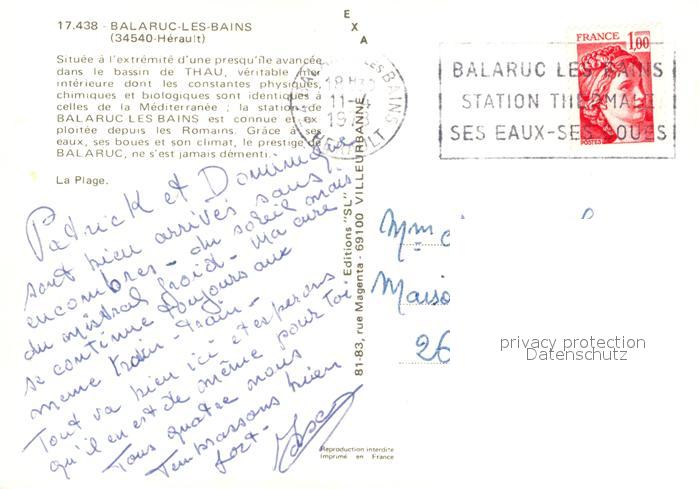 17.438 - BALARUC-LES-BAINS
(34540-Hérault)
Située à l'extrémité d'une presqu'île avancée
dans le bassin de THAU, véritable mer
intérieure dont les constantes physiques,
chimiques et biologiques sont identiques à
celles de la Méditerranée ; la station de
BALARUC LES BAINS est connue et ex-
ploitée depuis les Romains. Grâce à ses
eaux, ses boues et son climat, le prestige de
BALARUC, ne s'est jamais démenti.
La Plage.
Patrick et Dominique
sont bien arrivés sans
encombres - du soleil mais
du mistral froid - Ma cure
se continue toujours aux
meme train-train -
Tout va bien ici et esperons
qu'il en est de même pour toi
Tous quatre nous
t'embrassons bien
fort -
EXA
Editions "SL"
81-83, rue Magenta - 69100 VILLEURBANNE
Reproduction interdite
Imprimé en France
LES-BAINS
18H
11-4
HERAULT
BALARUC LES BAINS
STATION THERMALE
SES EAUX-SES BOUES
FRANCE
1,00
POSTES
Mme
Maiso
26
privacy protection
Datenschutz